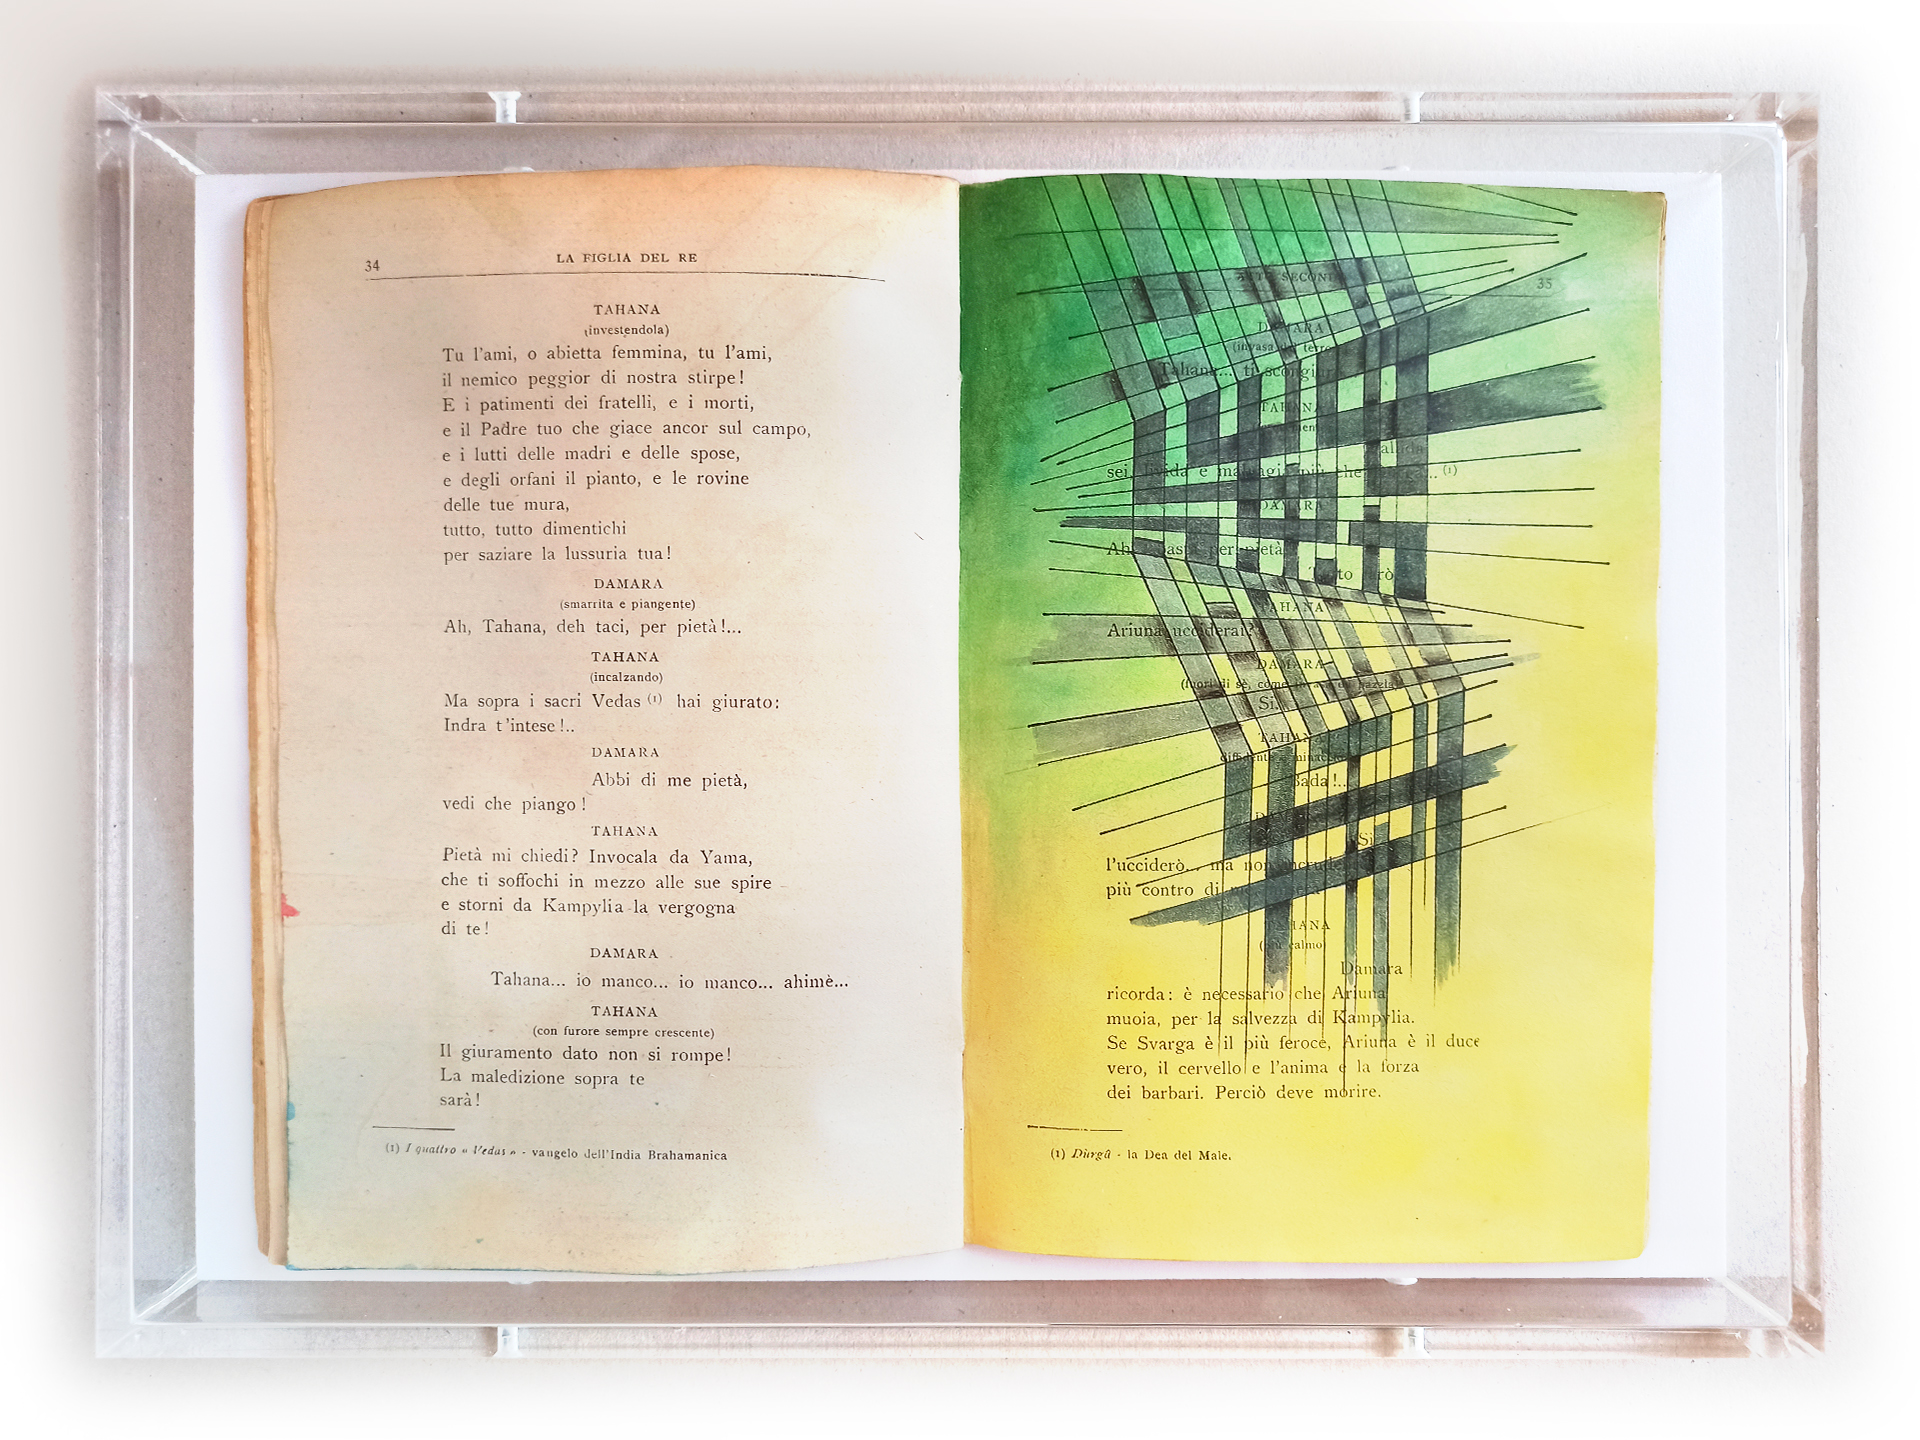 34
LA FIGLIA DEL RE
TAHANA
(investendola)
Tu l'ami, o abietta femmina, tu l'ami,
il nemico peggior di nostra stirpe!
E i patimenti dei fratelli, e i morti,
e il Padre tuo che giace ancor sul campo,
e i lutti delle madri e delle spose,
e degli orfani il pianto, e le rovine
delle tue mura,
tutto, tutto dimentichi
per saziare la lussuria tua!
DAMARA
(smarrita e piangente)
Ah, Tahana, deh taci, per pietà!...
TAHANA
(incalzando)
Ma sopra i sacri Vedas (1) hai giurato:
Indra t'intese!..
DAMARA
Abbi di me pietà,
vedi che piango!
TAHANA
Pietà mi chiedi? Invocala da Yama,
che ti soffochi in mezzo alle sue spire
e storni da Kampylia la vergogna
di te!
DAMARA
Tahana... io manco... io manco... ahimè...
TAHANA
(con furore sempre crescente)
Il giuramento dato non si rompe!
La maledizione sopra te
sarà!
(1) I quattro « Vedas » - vangelo dell'India Brahamanica
35
DAMARA
Tahana... ti
TAHANA
sei, livida e più che (1)
DAMARA
Ah, basta per pietà
TAHANA
Ariuna ucciderai?
DAMARA
(fuori di sè, come
Si.
TAHANA
Bada!..
Si
l'ucciderò... ma non
più contro di
TAHANA
(più calmo)
Damara
ricorda: è necessario che Ariuna
muoia, per la salvezza di Kampylia.
Se Svarga è il più feroce, Ariuna è il duce
vero, il cervello e l'anima e la forza
dei barbari. Perciò deve morire.
(1) Dùrgâ - la Dea del Male.